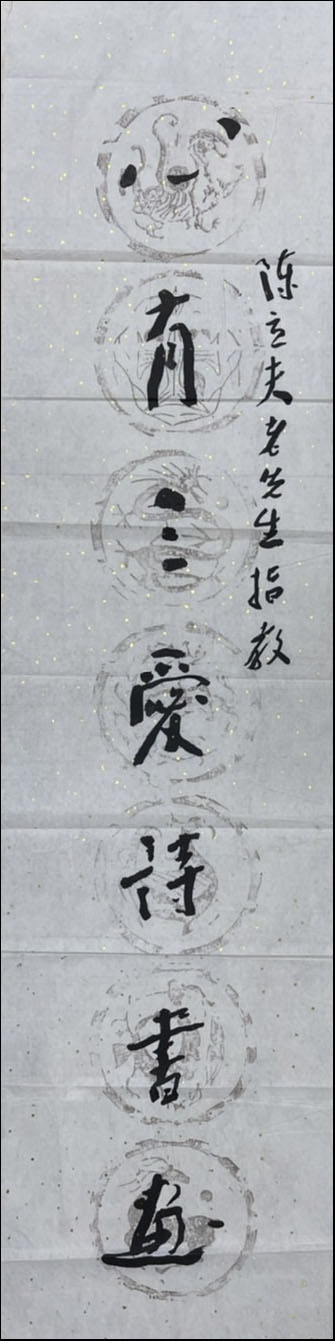 陈立夫老先生指教
心有三愛詩書畫